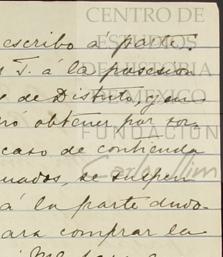 CENTRO DE
ESTUDIOS
DE HISTORIA
DE MÉXICO
FUNDACIÓN
Carlos Slim
escribo á parte.
T. á la posesion
de Distrito, q
obtener por
caso de contienda
se suspen
á la parte dudo-
ara comprar la